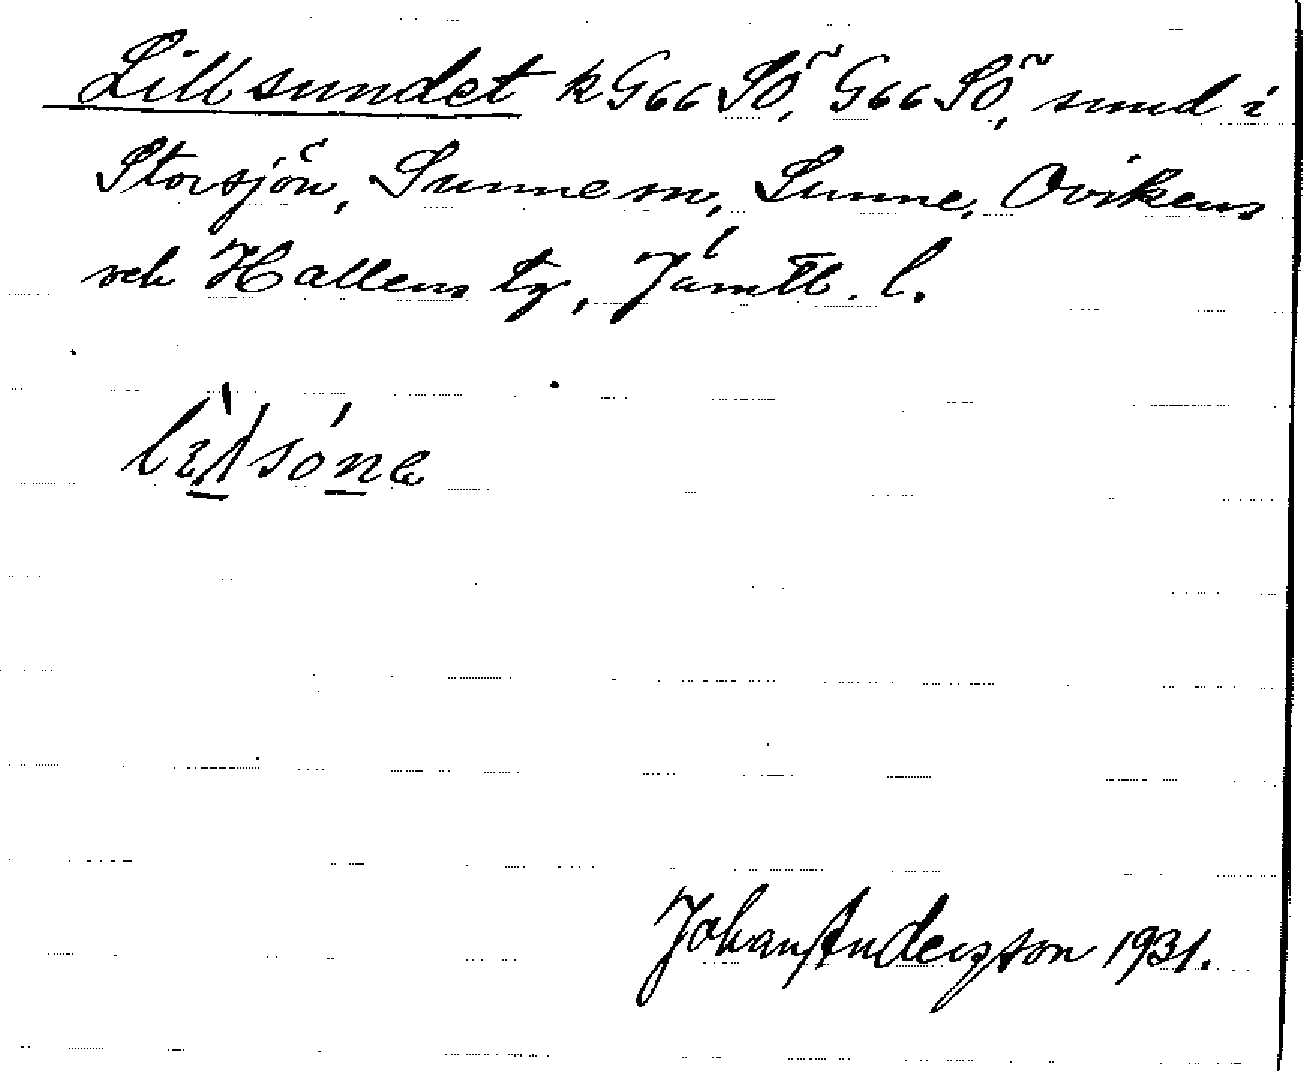 Lillsundet k G66 SÖ, G66 SÖ, sund i
Storsjön, Sunne sn, Sunne, Ovikens
och Hallens tg, Jämtl. l.
Johan Anderzson 1931.